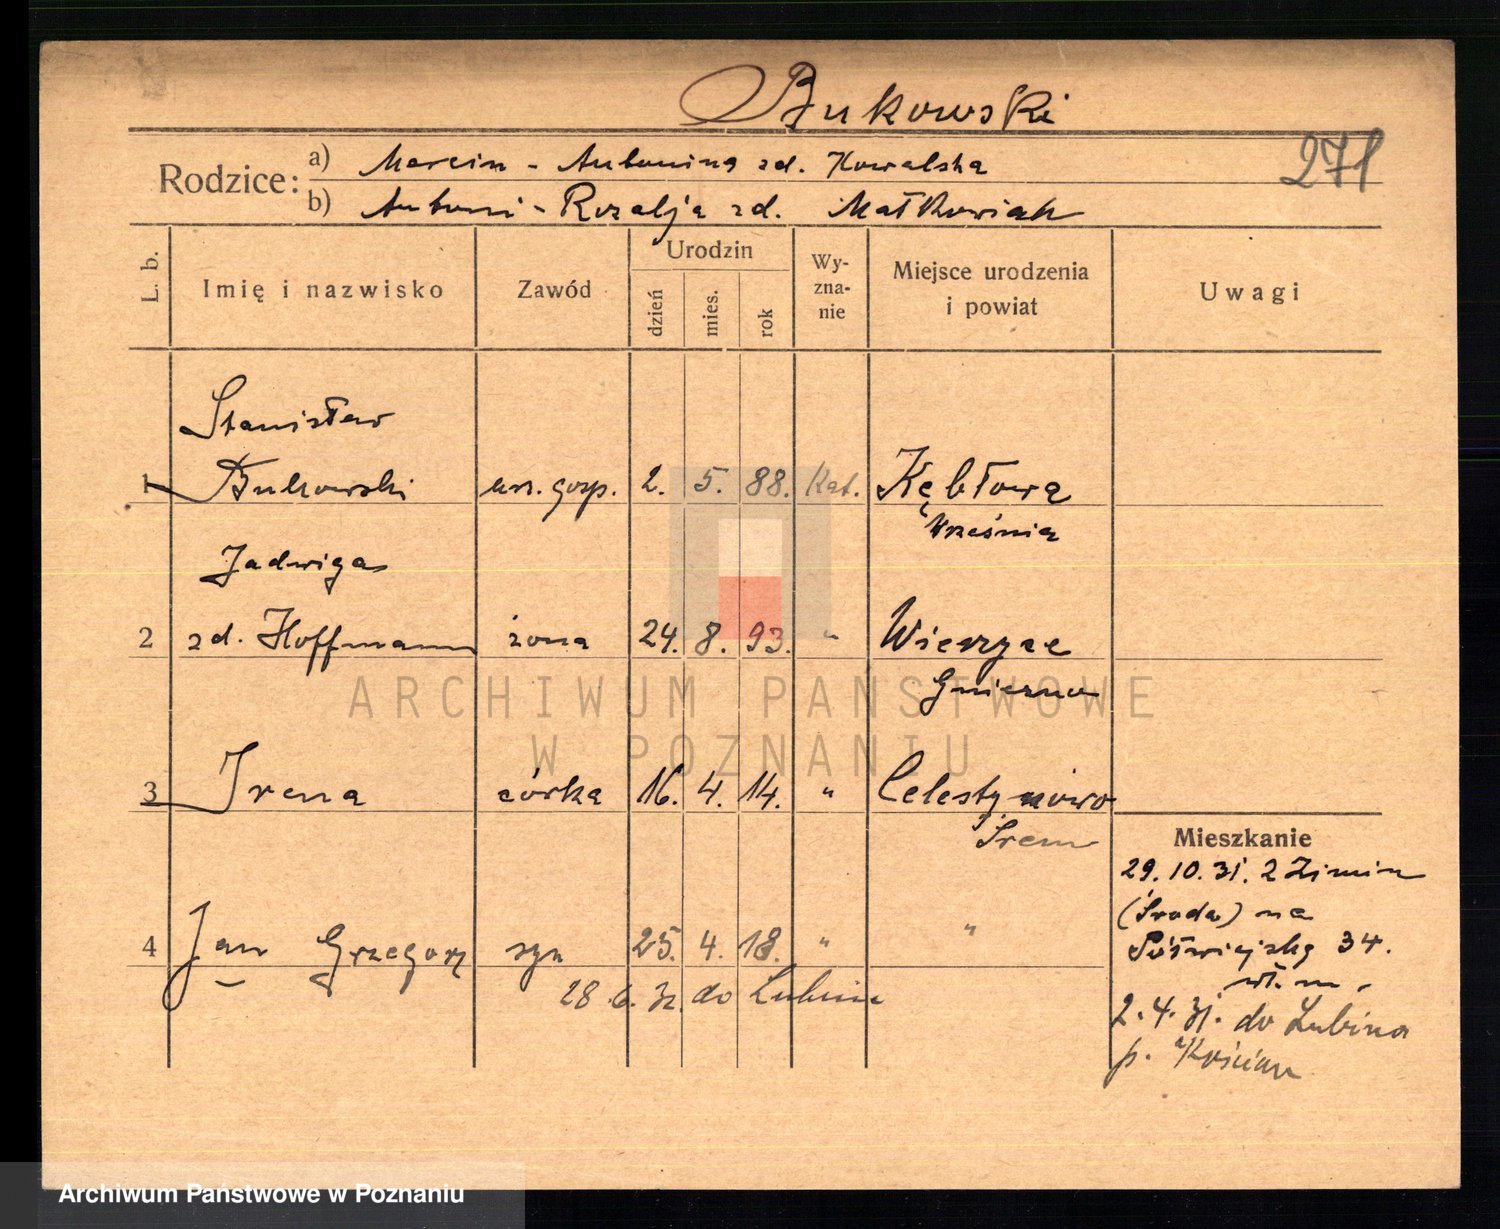 Bukowski
271
Rodzice:
a) Marcin - Antonina zd. Kowalska
b) Antoni - Rozalja zd. Matkowiak
L. b.
Imię i nazwisko
Zawód
Urodzin
dzień
mies.
rok
Wy-
zna-
nie
Miejsce urodzenia
i powiat
Uwagi
Stanisław
1 Bukowski urz. gosp. 2. 5. 88. Kat. Kębłowa
Września
Jadwiga
2 zd. Hoffmann żona 24. 8. 93. " Wierzyce
Gniezno
3 Irena córka 16. 4. 14. " Celestynowo
Śrem
Mieszkanie
29. 10. 31. z Zimin
(Środa) na
Półwiejską 34.
wł. m.
4 Jan Grzegorz syn 25. 4. 18. " "
28. 6. 32. do Lubinia
2. 4. 31. do Lubina
p. Kościan
ARCHIWUM PAŃSTWOWE
W POZNANIU
Archiwum Państwowe w Poznaniu